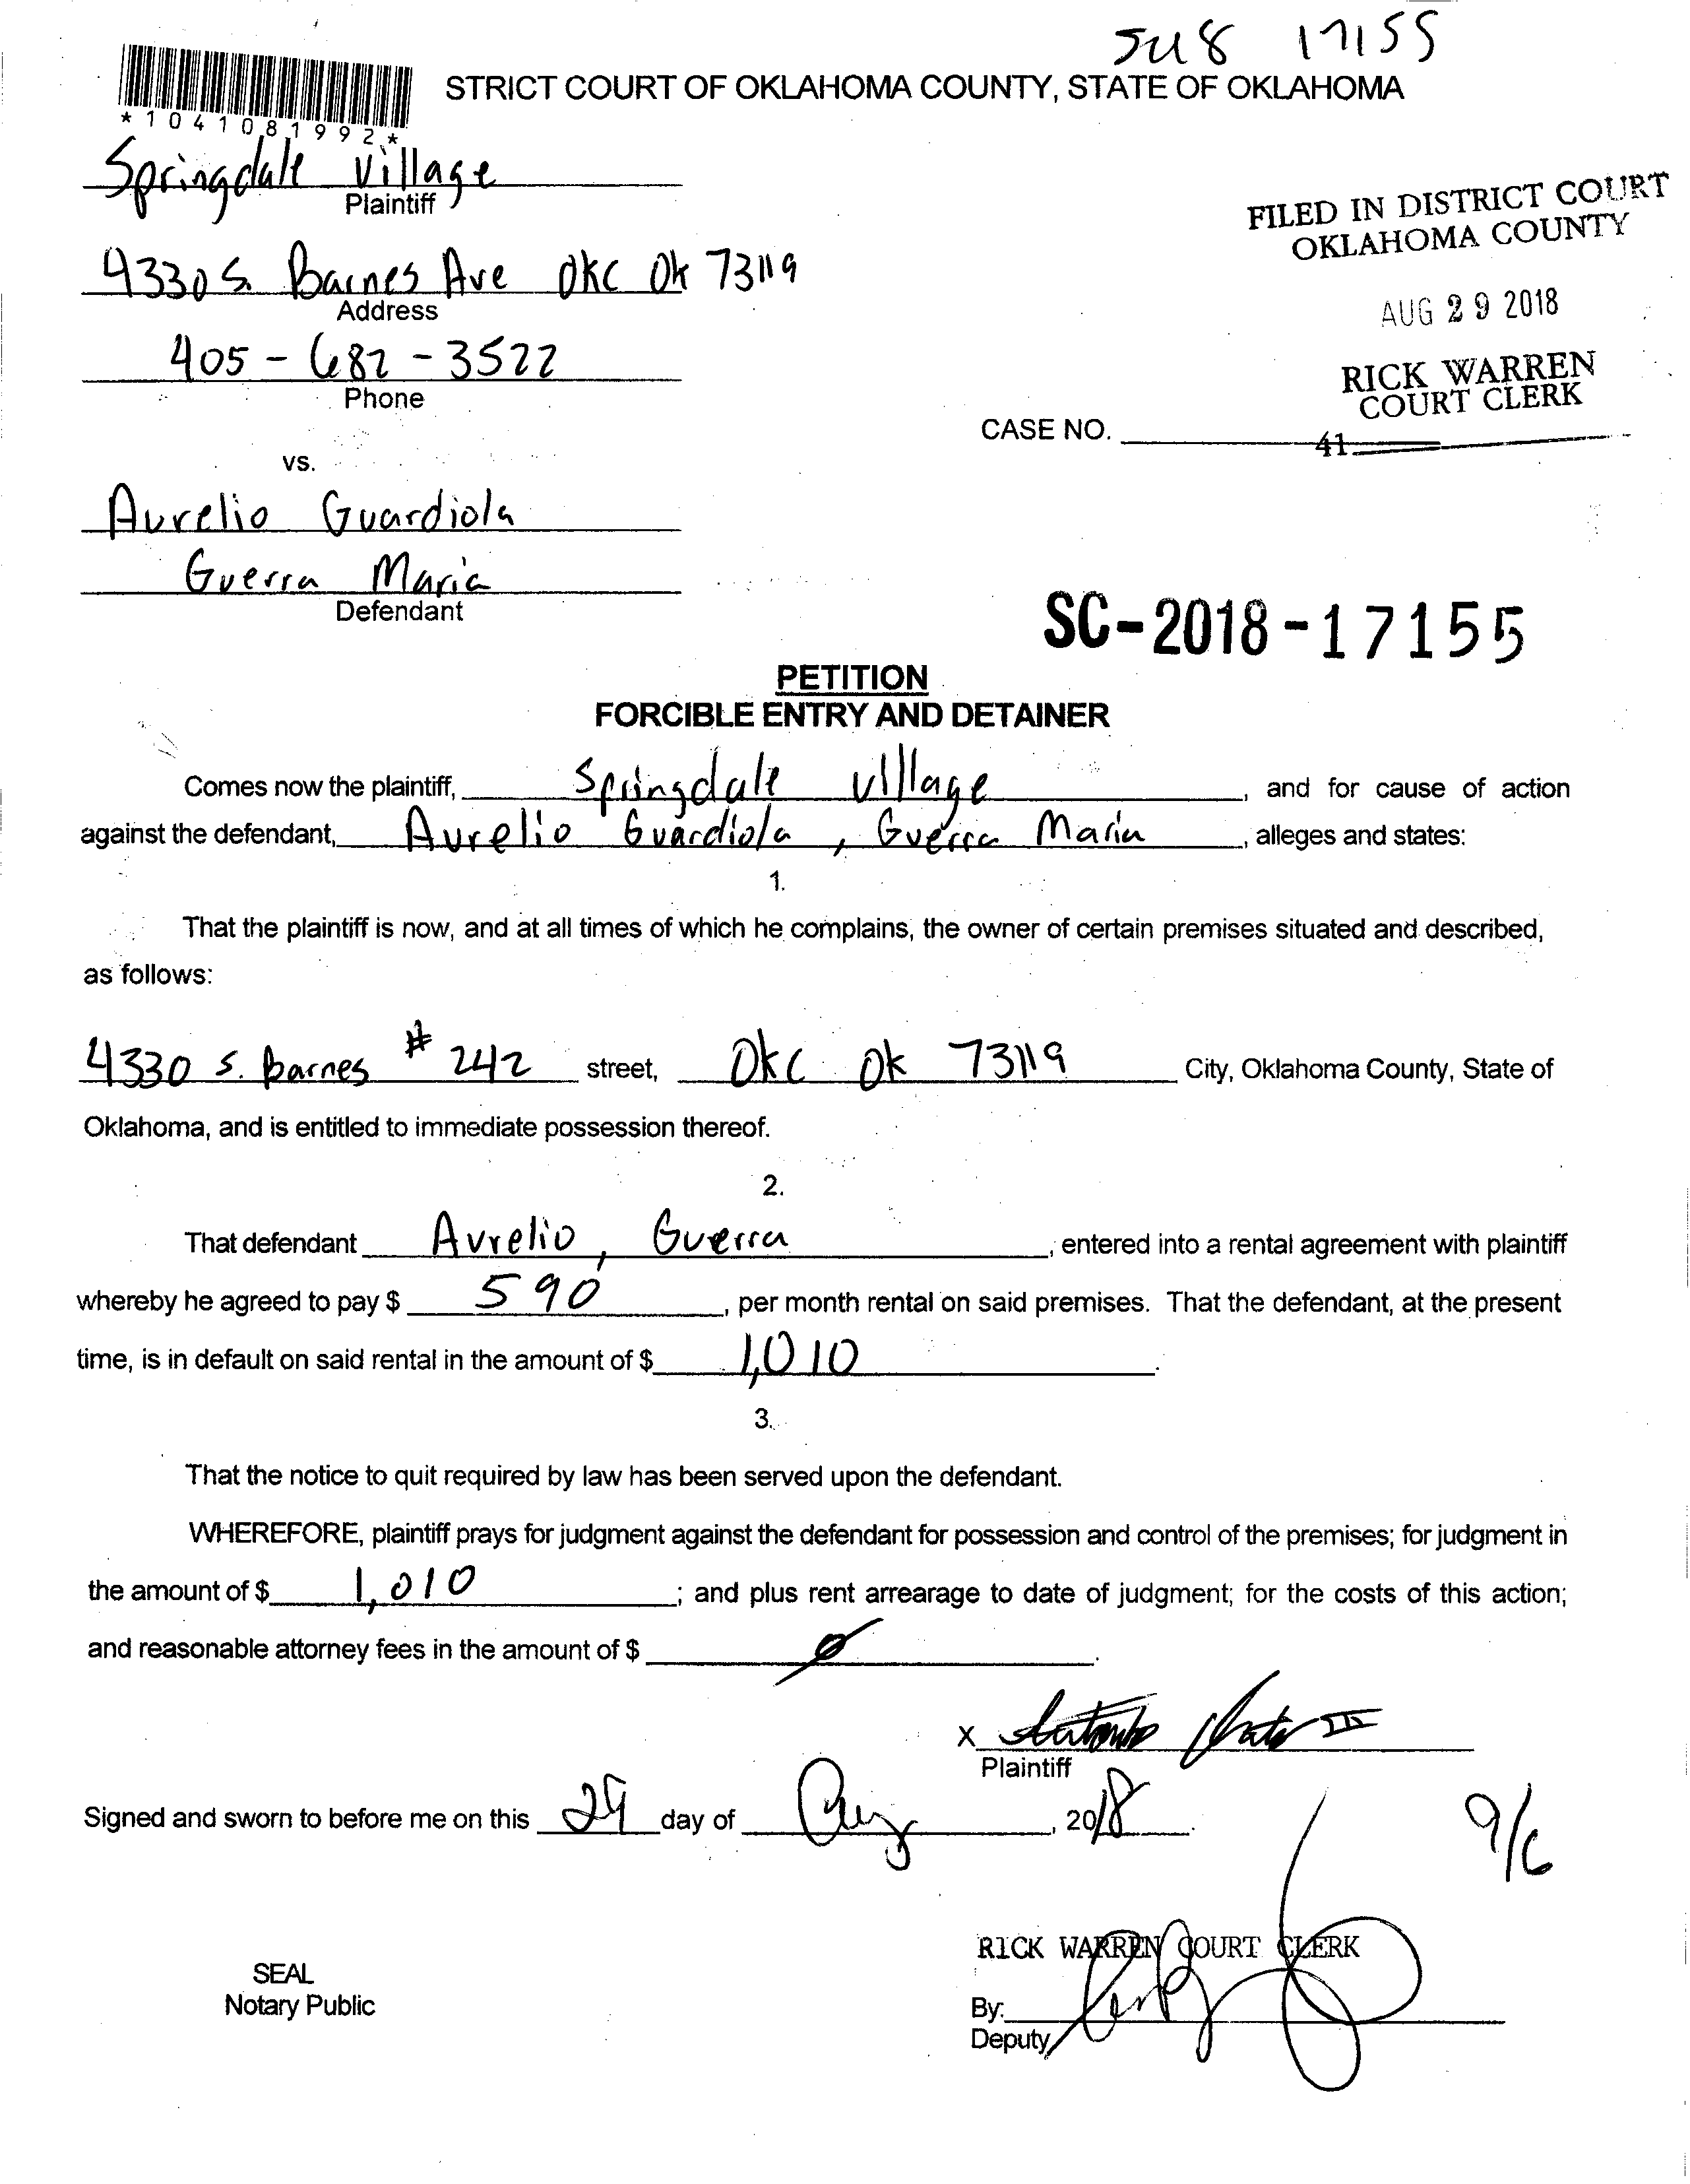 17155
STRICT COURT OF OKLAHOMA COUNTY, STATE OF OKLAHOMA
*1041081992*
Springdale Village
Plaintiff
FILED IN DISTRICT COURT
OKLAHOMA COUNTY
4330 S. Barnes Ave OKC OK 73119
Address
AUG 29 2018
405-682-3522
Phone
RICK WARREN
COURT CLERK
CASE NO.
41
vs.
Aurelio Guardiola
Guerra Maria
Defendant
SC-2018-17155
PETITION
FORCIBLE ENTRY AND DETAINER
Comes now the plaintiff, Springdale Village, and for cause of action
against the defendant, Aurelio Guardiola, Guerra Maria, alleges and states:
1.
That the plaintiff is now, and at all times of which he complains, the owner of certain premises situated and described,
as follows:
4330 S. Barnes # 242 street, OKC OK 73119 City, Oklahoma County, State of
Oklahoma, and is entitled to immediate possession thereof.
2.
That defendant Aurelio, Guerra, entered into a rental agreement with plaintiff
whereby he agreed to pay $ 590, per month rental on said premises. That the defendant, at the present
time, is in default on said rental in the amount of $ 1,010.
3.
That the notice to quit required by law has been served upon the defendant.
WHEREFORE, plaintiff prays for judgment against the defendant for possession and control of the premises; for judgment in
the amount of $ 1,010; and plus rent arrearage to date of judgment; for the costs of this action;
and reasonable attorney fees in the amount of $ 0.
X
Plaintiff
Signed and sworn to before me on this 29 day of Aug, 2018.
9/6
RICK WARREN COURT CLERK
SEAL
Notary Public
By:
Deputy